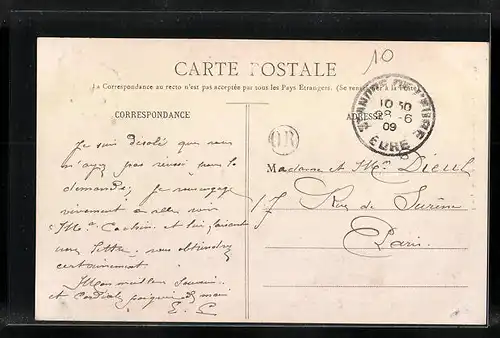 10
CARTE POSTALE
La Correspondance au recto n'est pas acceptée par tous les Pays Etrangers. (Se renseigner à la Poste)
CORRESPONDANCE
ADRESSE
ST ANDRÉ DE L'EURE
10 50
28 -6
09
EURE
OR
Je suis désolé que vous
n'ayez pas réussi dans la
demande; je vous engage
vivement à aller voir
et lui faisant
lettre vous obtiendrez
certainement.
Mon meilleur souvenir
et cordiale poignée de main
E. C
Madame et Mr Dieul
17 Rue de Surène
Paris.